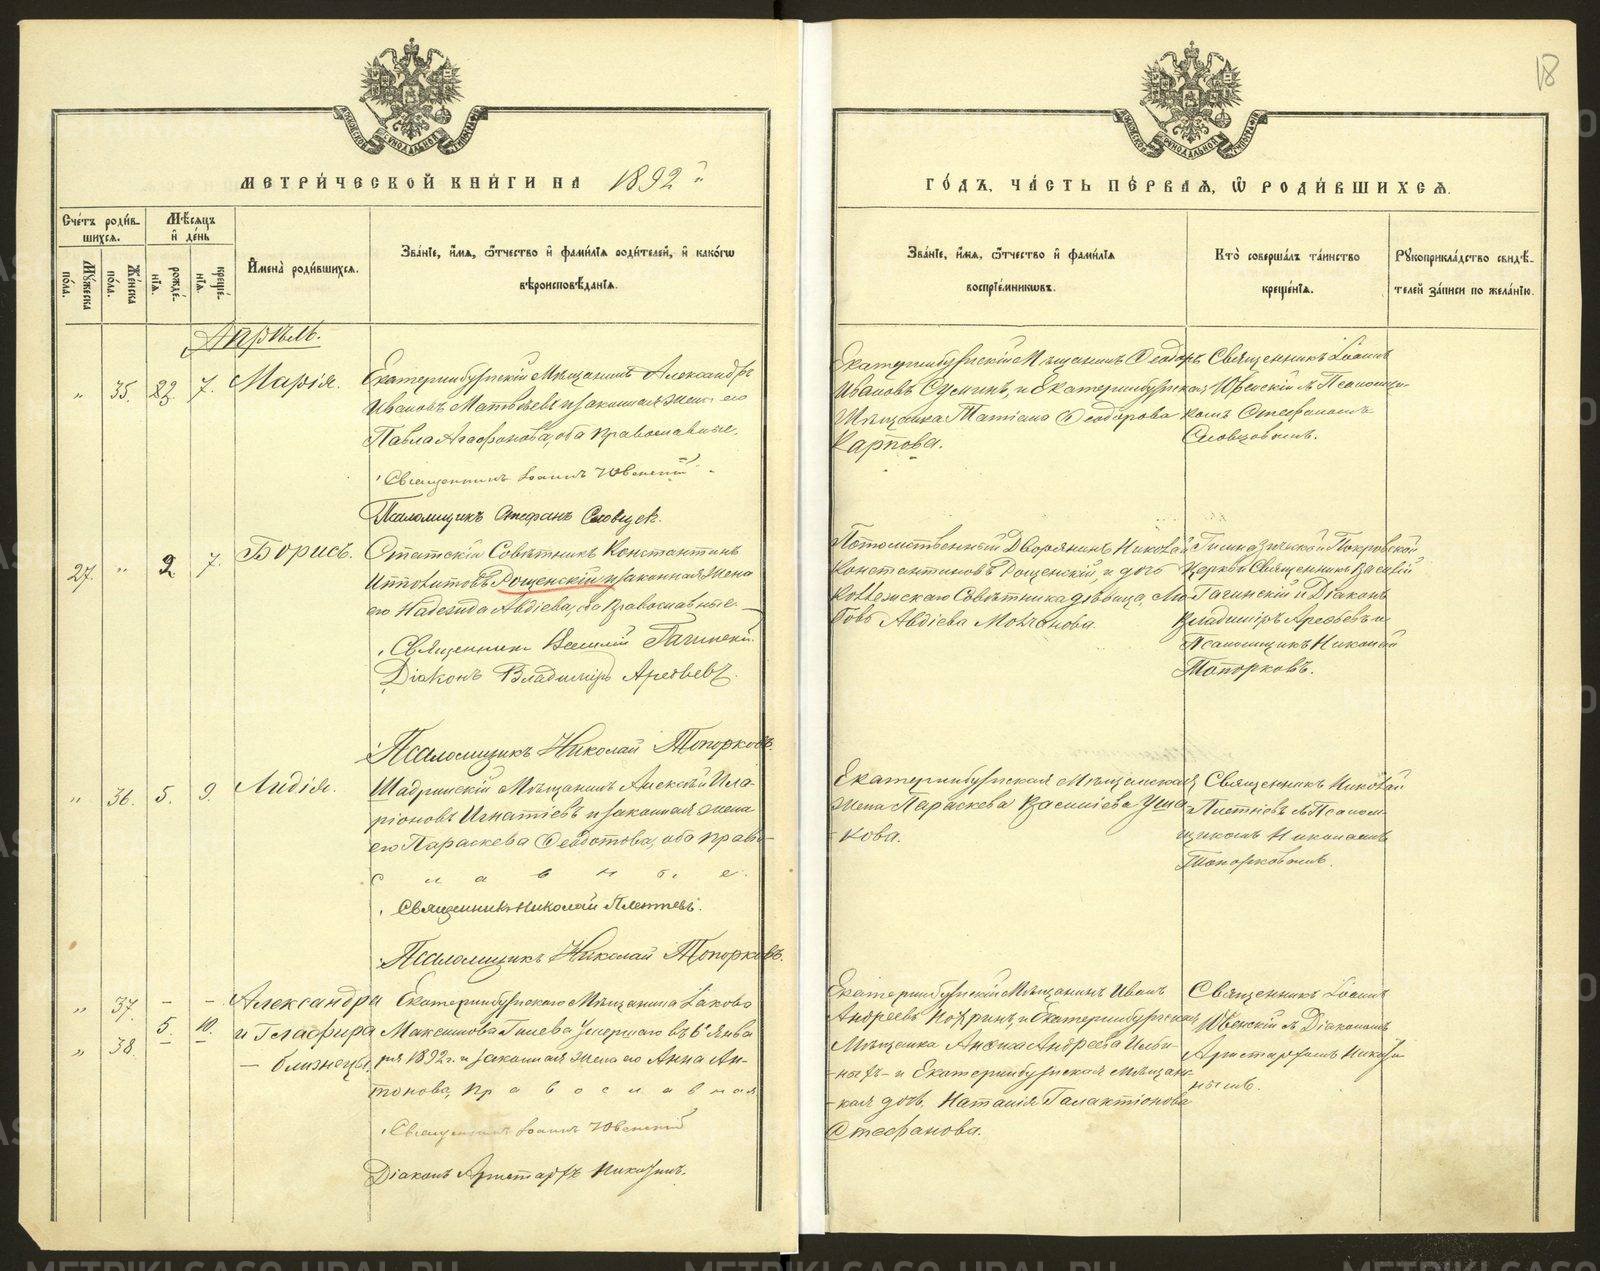 18
МЕТРИ́ЧЕСКОЙ КНИ́ГИ НА 1892й
ГО́ДЪ, ЧА́СТЬ ПЕ́РВАЯ, Ѿ РОДИ́ВШИХСЯ.
Сче́тъ роди́в-
шихся.
Му́жеска по́ла.
Же́нска по́ла.
Мѣ́сяцъ и де́нь
рожде́нія.
креще́нія.
И҆мена̀ роди́вшихся.
Зва́нїе, и҆́мя, ѻ҆́тчество и҆ фами́лїя роди́телей, и҆ како́гѡ
вѣроисповѣ́данїя.
Зва́нїе, и҆́мя, ѻ҆́тчество и҆ фами́лїя
воспрїе́мникѡвъ.
Кто̀ соверша́лъ та́инство
креще́нїя.
Рꙋкоприкла́дство свидѣ́-
телей за́писи по жела́нїю.
Апрѣль.
" 35. 22. 7. Марія.
Екатеринбургскій Мѣщанинъ Александръ
Ивановъ Матвѣевъ и законная жена его
Павла Агафонова, оба православные.
Священникъ Іоаннъ Ювенскій
Псаломщикъ Стефанъ Словцовъ.
Екатеринбургскій Мѣщанинъ Ѳеодоръ
Ивановъ Сусминъ, и Екатеринбургская
Мѣщанка Татіана Ѳеодорова
Карпова.
Священникъ Іоаннъ
Ювенскій съ Псаломщи-
комъ Стефаномъ
Словцовымъ.
27. " 2 7. Борисъ.
Статскій Совѣтникъ Константинъ
Ипполитовъ Рощенскій и законная жена
его Надежда Авдіева, оба православные.
Священникъ Василій Гагинскій
Діаконъ Владиміръ Арефьевъ.
Псаломщикъ Николай Топорковъ.
Потомственный Дворянинъ Николай
Константиновъ Рощенскій, и дочь
Коллежскаго Совѣтника дѣвица, Лю-
бовь Авдіева Молчанова.
Гимназической Покровской
церкви Священникъ Василій
Гагинскій и Діаконъ
Владиміръ Арефьевъ и
Псаломщикъ Николай
Топорковъ.
" 36. 5. 9. Лидія.
Шадринскій Мѣщанинъ Алексѣй Ила-
ріоновъ Игнатіевъ и законная жена
его Параскева Ѳедотова, оба право-
славные.
Священникъ Николай Плетневъ.
Псаломщикъ Николай Топорковъ.
Екатеринбургская Мѣщанская
жена Параскева Василіева Уша-
кова.
Священникъ Николай
Плетневъ съ Псалом-
щикомъ Николаемъ
Топорковымъ.
" 37. - - Александра
" 38. 5. 10. и Глафира
— близнецы.
Екатеринбургскаго Мѣщанина Іакова
Максимова Гилева умершаго въ 6е Янва-
ря 1892 г. и законная жена его Анна Ан-
тонова, православная
Священникъ Іоаннъ Ювенскій
Діаконъ Аристархъ Никулинъ.
Екатеринбургскій Мѣщанинъ Иванъ
Андреевъ и Екатеринбургская
Мѣщанка Андреева Ильи-
ныхъ и Екатеринбургская мѣщанс-
кая дочь Наталія Галактіонова
Стефанова.
Священникъ Іоаннъ
Ювенскій съ Діакономъ
Аристархомъ Никули-
нымъ.